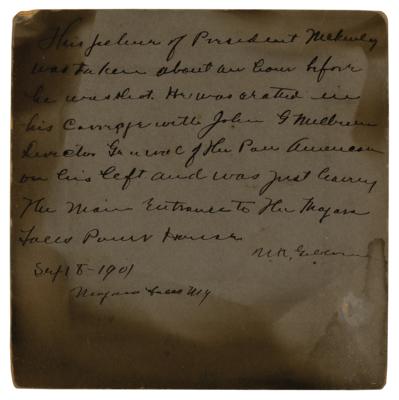 This picture of President McKinley
was taken about an hour before
he was shot. He was seated in
his Carriage with John G Milburn
Director General of the Pan American
on his left and was just leaving
The Main Entrance to the Niagara
Falls Power House
M.H.
Sept 8-1901
Niagara Falls N.Y